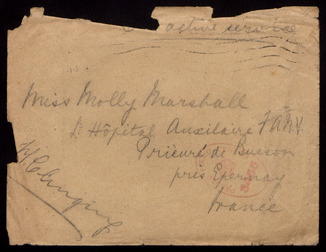 active service
Miss Molly Marshall
Hôpital Auxilaire F.A.N.Y.
Prieuré de Buxson
près Epernay
France